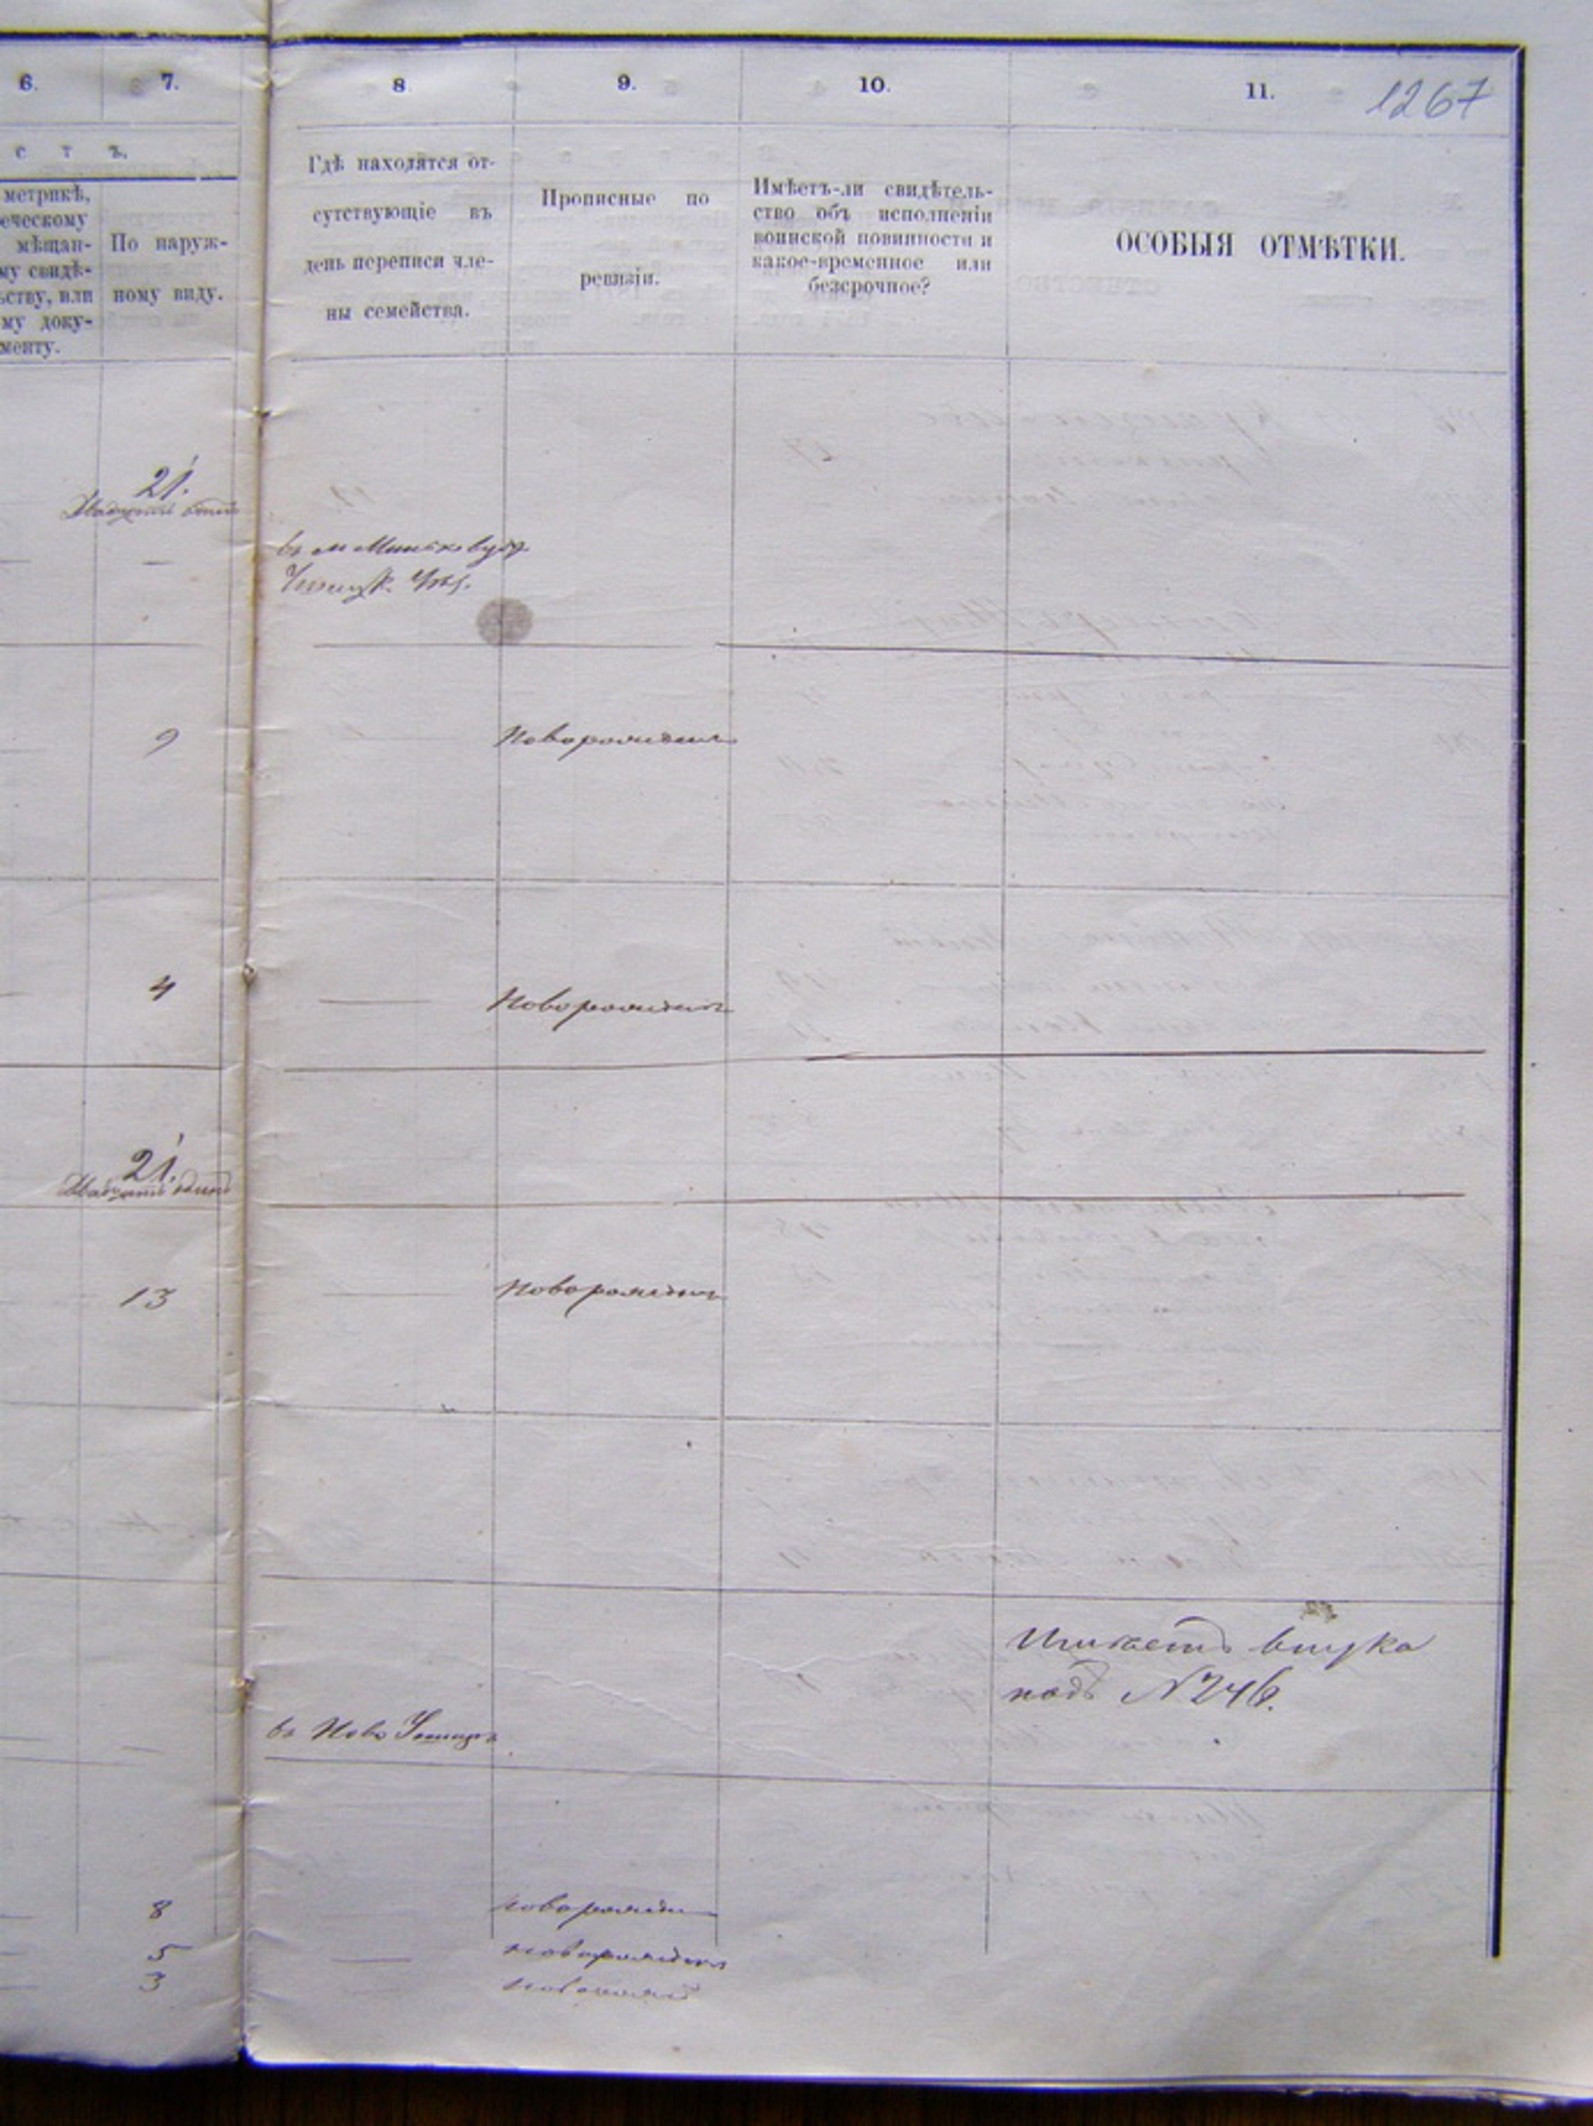 6. 7. 8 9. 10. 11. 1267
с т ъ.
метрикѣ,
мѣщан-
му свидѣ-
ству, или
му доку-
менту.
По наруж-
ному виду.
Гдѣ находятся от-
сутствующіе въ
день переписи чле-
ны семейства.
Прописные по
ревизіи.
Имѣетъ-ли свидѣтель-
ство объ исполненіи
воинской повинности и
какое-временное или
безсрочное?
ОСОБЫЯ ОТМѢТКИ.
21.
Двадцать
въ м
9 Новорожден
4 Новорожден
21.
Двадцать один
13 Новорожден
внука
подъ N 246.
въ Ново Ушицѣ
8 новорожден
5 новорожден
3 новорожд